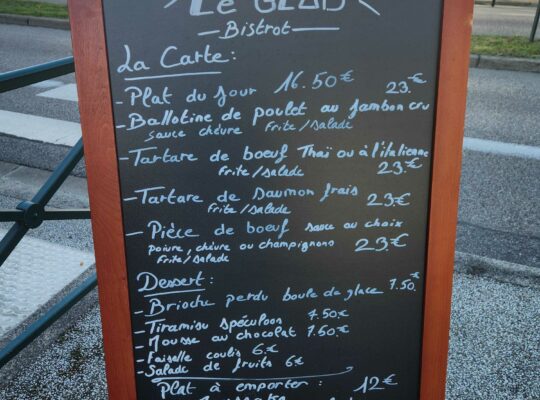 Le GLAÇ
— Bistrot —
La Carte :
- Plat du Jour 16.50€ 23.€
- Ballotine de poulet au jambon cru
sauce chèvre Frite/Salade
- Tartare de boeuf Thaï ou à l'italienne
Frite/Salade 23.€
- Tartare de Saumon frais
Frite/Salade 23€
- Pièce de boeuf sauce au choix
poivre, chèvre ou champignons 23.€
Frite/Salade
Dessert :
- Brioche perdu boule de glace 7.50.
- Tiramisu spéculoon 7.50€
- Mousse au chocolat 7.60€
- Faiselle coulis 6.€
- Salade de fruits 6€
Plat à emporter : 12€